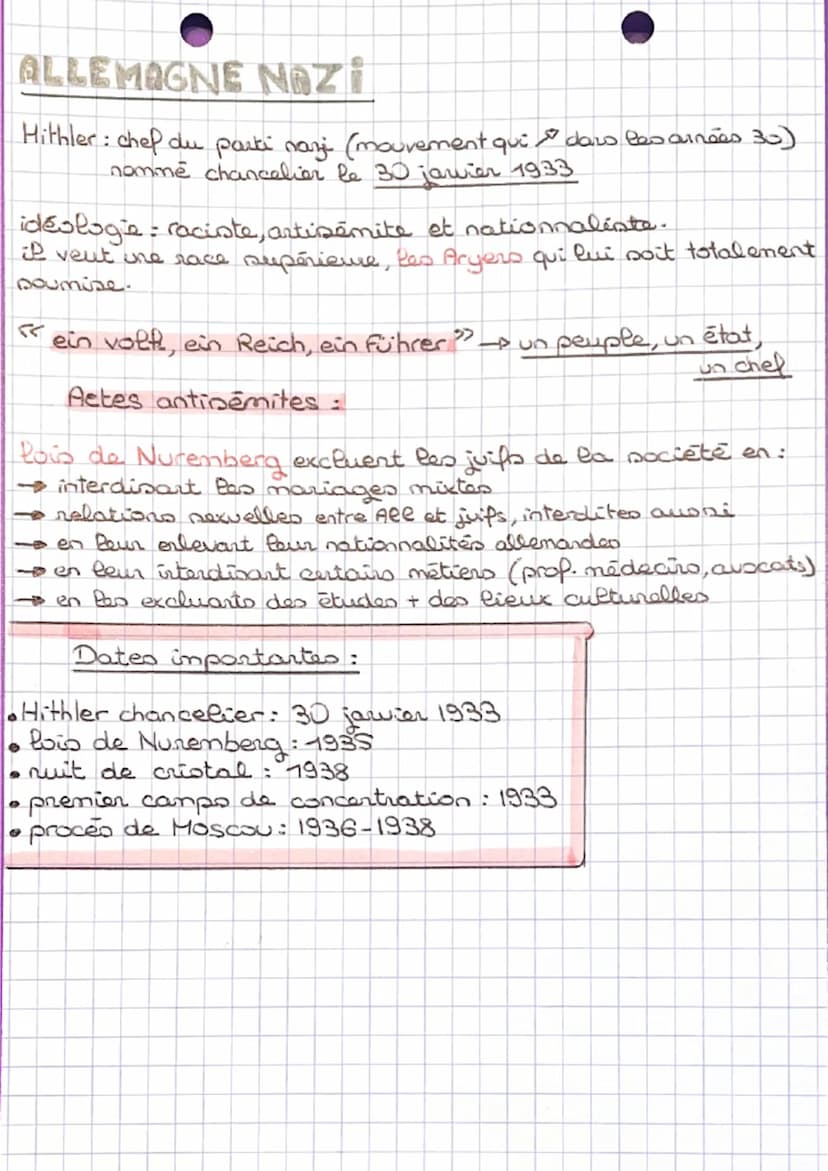 ALLEMAGNE NAZi
Hithler : chef du parti nazi (mouvement qui ↗ dans les années 30)
nommé chancelier le 30 janvier 1933
idéologie : raciste, antisémite et nationnaliste.
il veut une race supérieure, les Aryens qui lui soit totalement
soumise.
« ein volk, ein Reich, ein Führer » → un peuple, un état,
un chef
Actes antisémites :
lois de Nuremberg excluent les juifs de la société en :
→ interdisant les mariages mixtes
→ relations sexuelles entre All et juifs, interdites aussi
→ en leur enlevant leur nationnalités allemandes
→ en leur interdisant certains métiers (prof. médecins, avocats)
→ en les excluants des études + des lieux culturelles
Dates importantes :
• Hithler chancelier : 30 janvier 1933
• lois de Nuremberg : 1935
• nuit de cristal : 1938
• premier camps de concentration : 1933
• procès de Moscou : 1936-1938